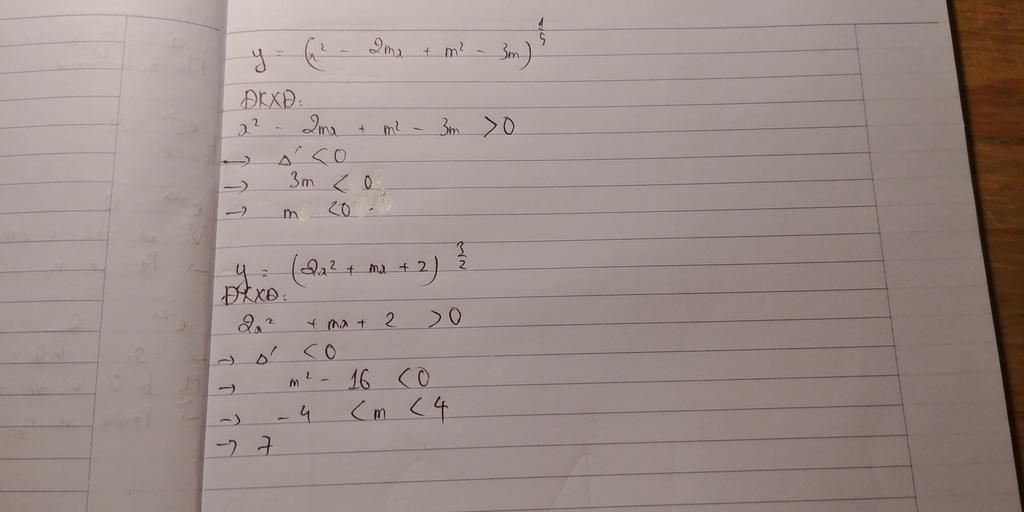 y = (x² - 2mx + m² - 3m)^{1/5}
ĐKXĐ:
x² - 2mx + m² - 3m > 0
→ Δ' < 0
→ 3m < 0
→ m < 0
y = (2x² + mx + 2)^{3/2}
ĐKXĐ:
2x² + mx + 2 > 0
→ Δ' < 0
→ m² - 16 < 0
→ -4 < m < 4
→ 7